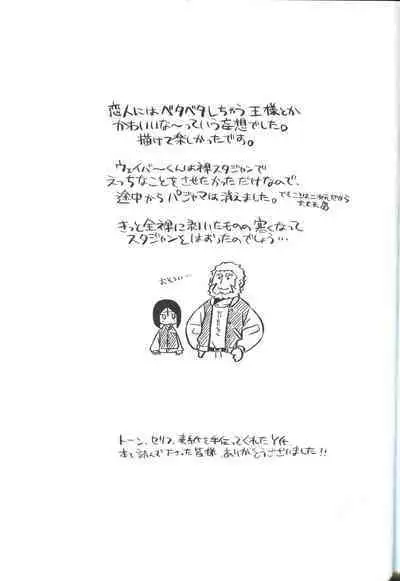 恋人にはベタベタしちゃう王様とか
かわいいな〜っていう妄想でした。
描けて楽しかったです。
ウェイバーくんは裸スタジャンで
えっちなことをさせたかっただけなので、
途中からパジャマは消えました。
きっと全裸に剥いたものの寒くなって
スタジャンをはおったのでしょう…
トーン、セリフ、表紙を手伝ってくれたY任
本を読んで下さった皆様 ありがとうございました!!